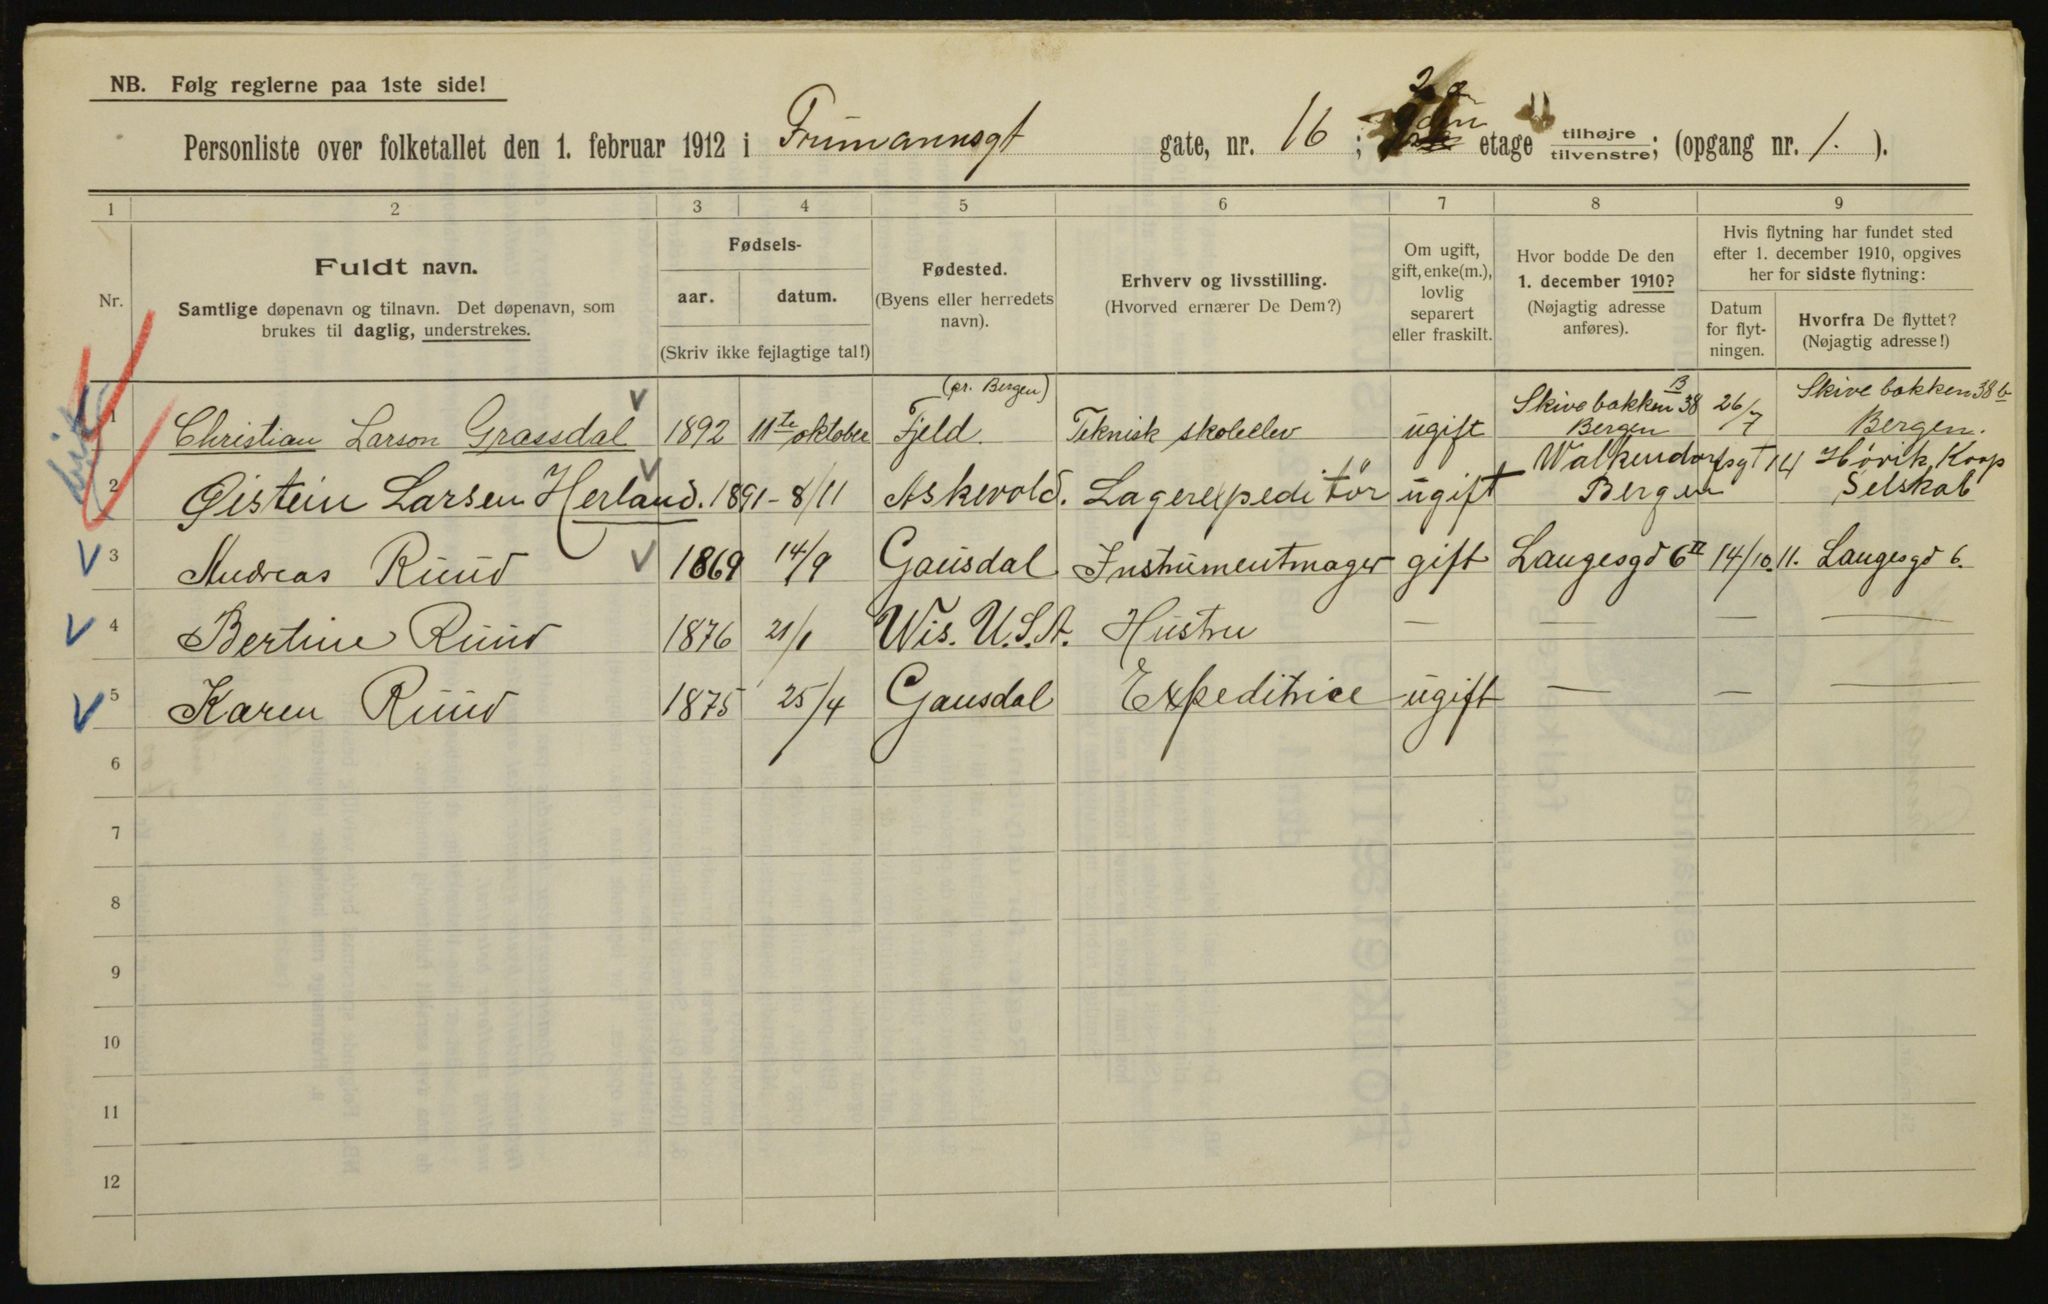 NB. Følg reglerne paa 1ste side!
Personliste over folketallet den 1. februar 1912 i Trumannsgt gate, nr. 16; etage tilhøjre
tilvenstre; (opgang nr. 1. ).
1 2 3 4 5 6 7 8 9
Nr.
Fuldt navn.
Samtlige døpenavn og tilnavn. Det døpenavn, som
brukes til daglig, understrekes.
Fødsels-
aar. datum.
(Skriv ikke fejlagtige tal!)
Fødested.
(Byens eller herredets
navn).
Erhverv og livsstilling.
(Hvorved ernærer De Dem?)
Om ugift,
gift, enke(m.),
lovlig
separert
eller fraskilt.
Hvor bodde De den
1. december 1910?
(Nøjagtig adresse
anføres).
Hvis flytning har fundet sted
efter 1. december 1910, opgives
her for sidste flytning:
Datum
for flyt-
ningen.
Hvorfra De flyttet?
(Nøjagtig adresse!)
1 Christian Larson Grassdal 1892 11te oktober Fjeld (pr. Bergen) Teknisk skoleelev ugift Skivebakken 38 B Bergen 26/7 Skivebakken 38 b Bergen.
2 Øistein Larsen Herland. 1891 - 8/11 Askevold. Lagerexpeditör ugift Walkendorfsgt 14 Bergen Hövik Koop Selskab
3 Andreas Ruud 1869 14/9 Gausdal Instrumentmager gift Langesgd 6 II 14/10.11. Langesgd 6.
4 Bertine Ruud 1876 21/1 Wis. U.S.A. Hustru — — — —
5 Karen Ruud 1875 25/4 Gausdal Expeditrice ugift — — —
6
7
8
9
10
11
12